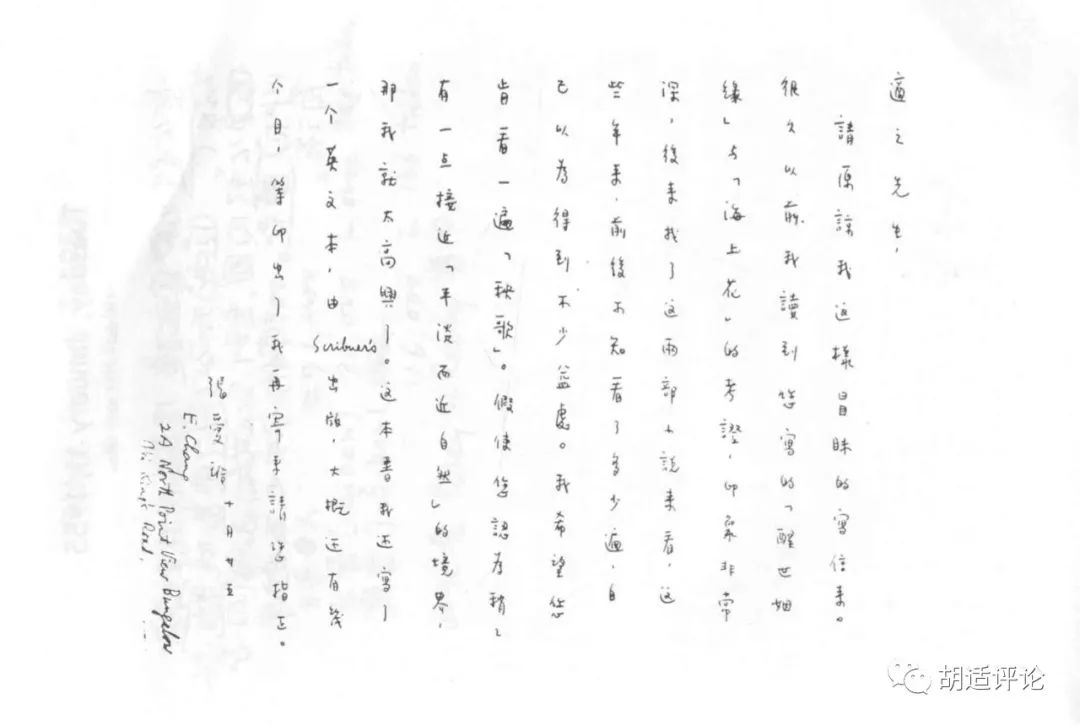 適之先生，
請原諒我這樣冒昧的寫信來。
很久以前我讀到您寫的「醒世姻
緣」与「海上花」的考證，印象非常
深，後來找了這兩部小説来看，這
些年来，前後不知看了多少遍，自
己以為得到不少益處。我希望您
肯看一遍「秧歌」。假使您認為稍々
有一点接近「平淡而近自然」的境界，
那我就太高興了。这本書我还寫了
一个英文本，由Scribner's出版，大概还有幾
个月，等印出了我再寄来請您指正。
張愛玲 十月廿五
E. Chang
2A North Point View Bungalow
King's Road,
胡适评论